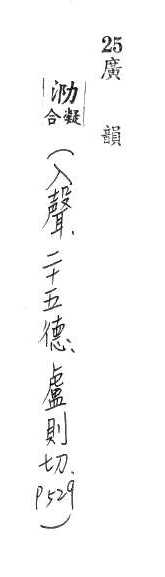 25廣韻
泐凝合
(入聲、二十五德、盧則切、P529)